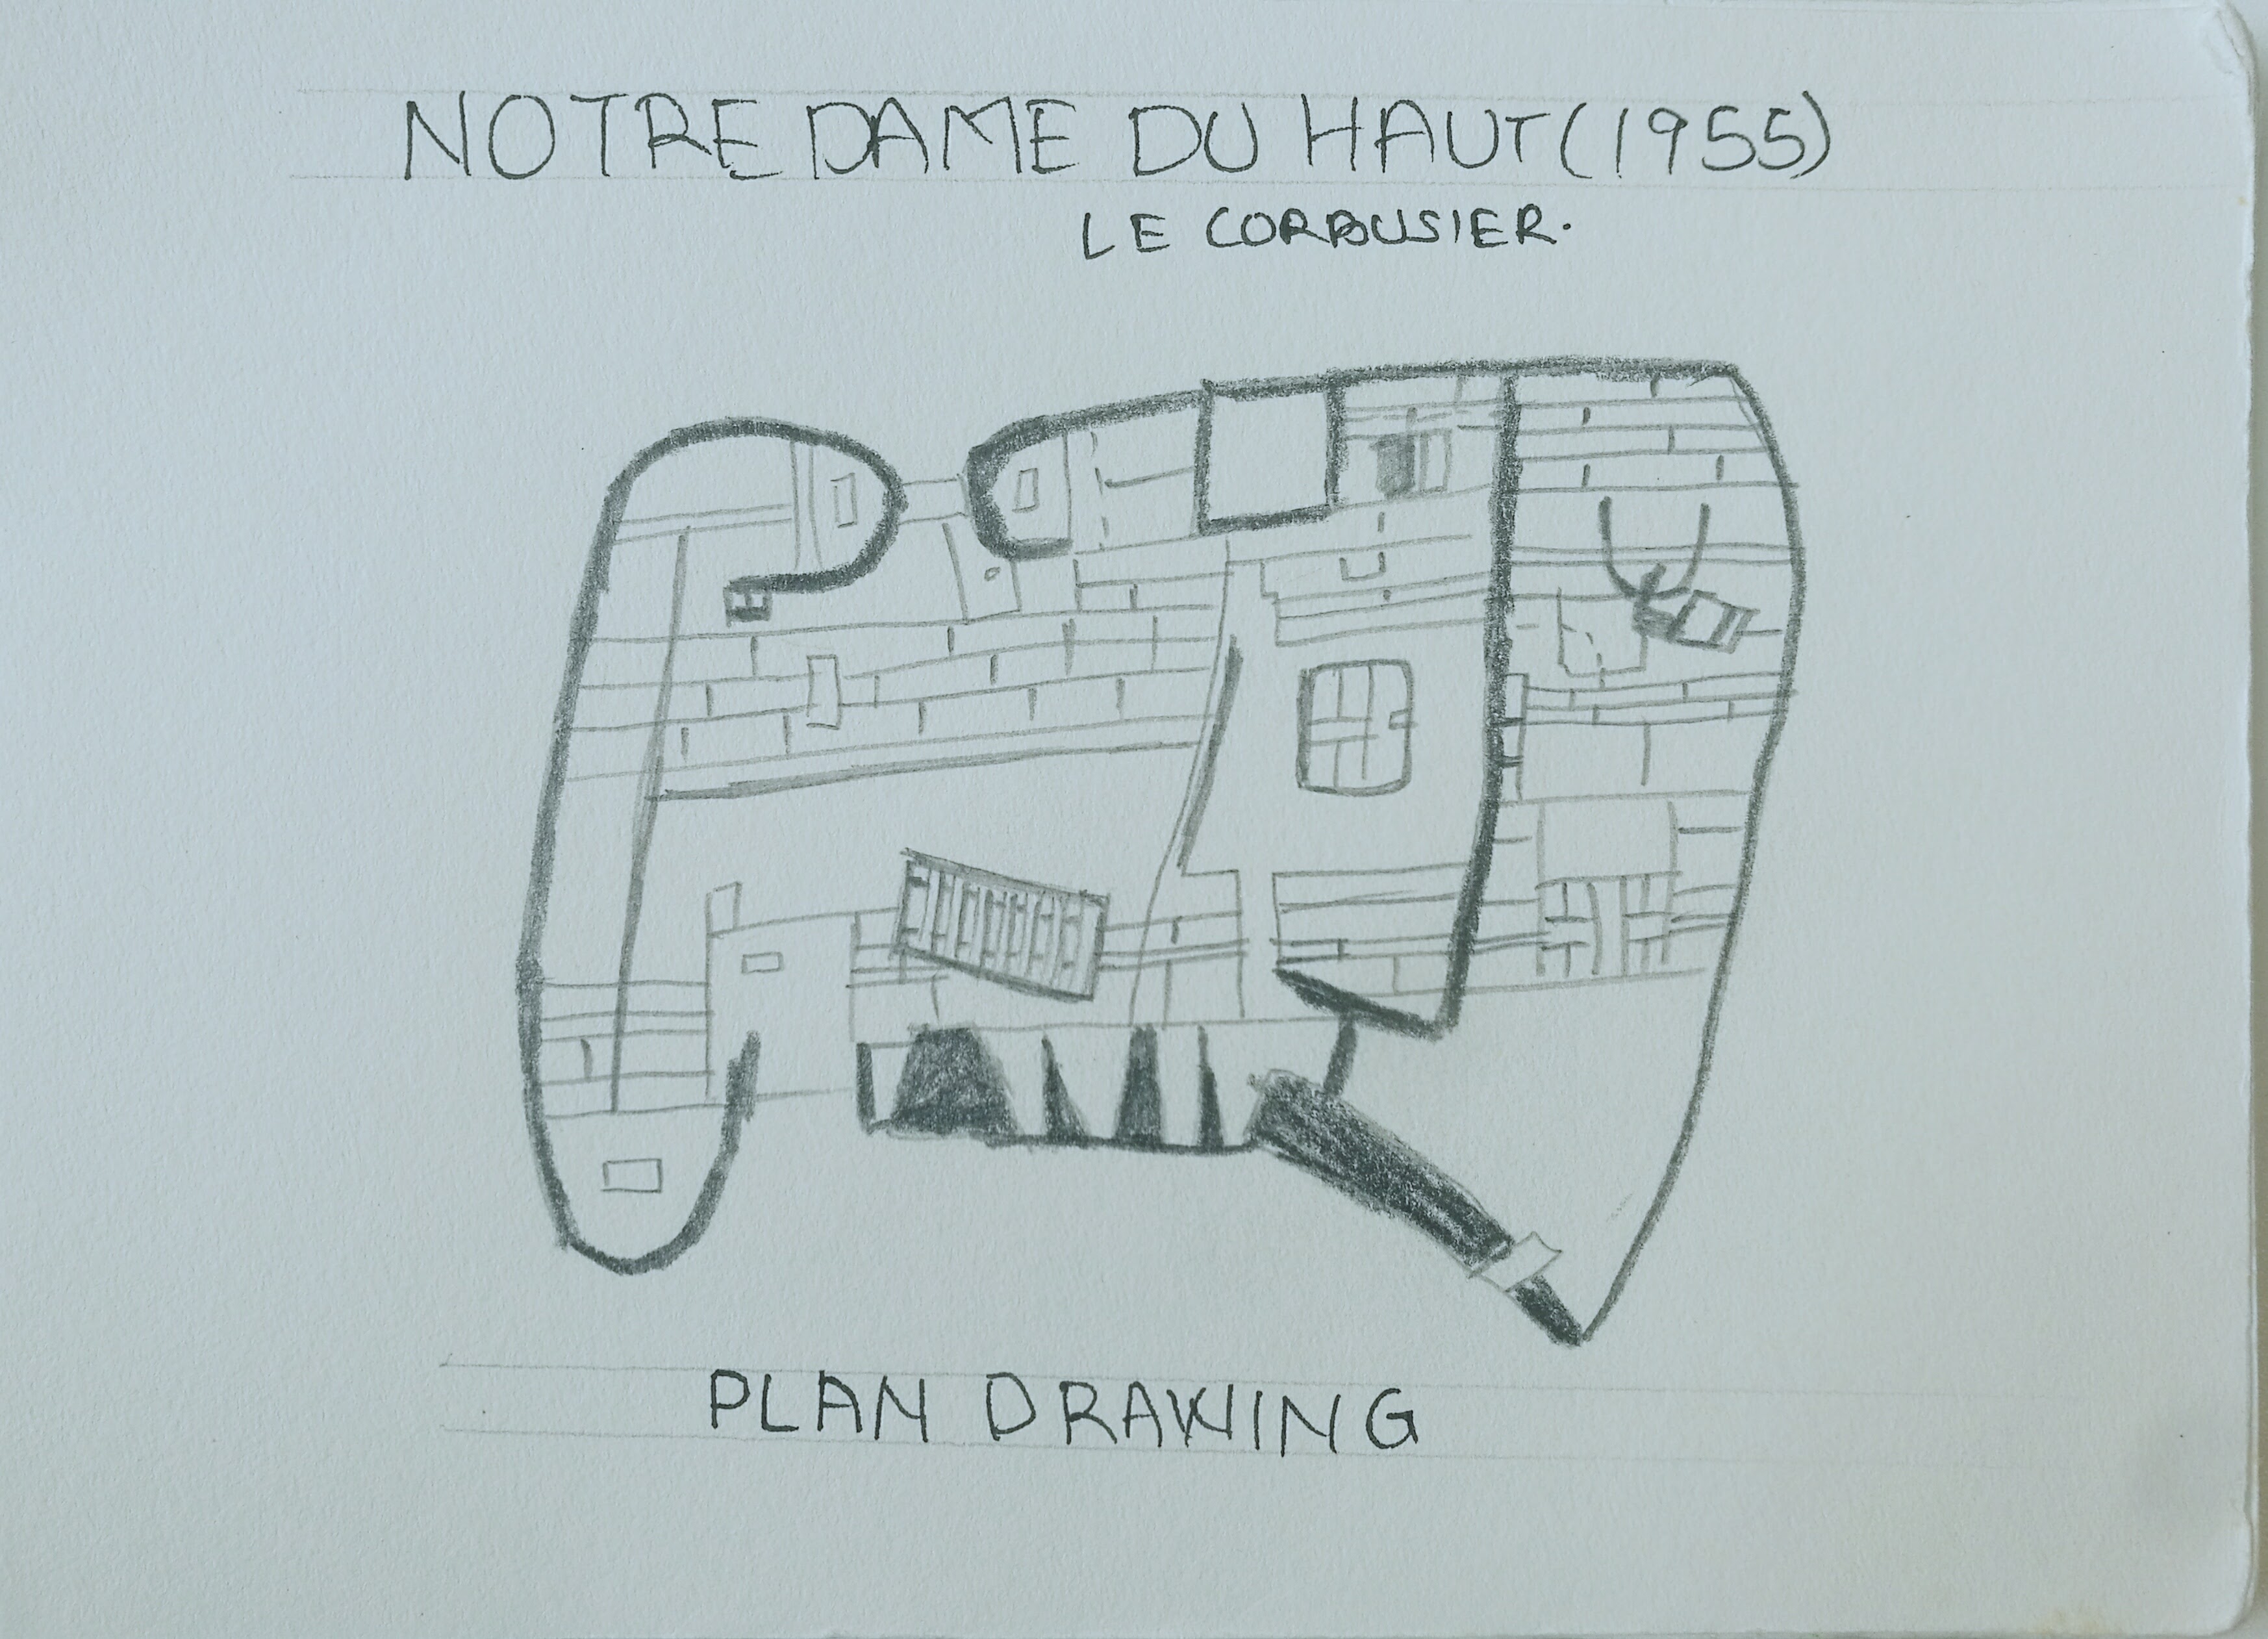 NOTRE DAME DU HAUT (1955)
LE CORBUSIER.
PLAN DRAWING